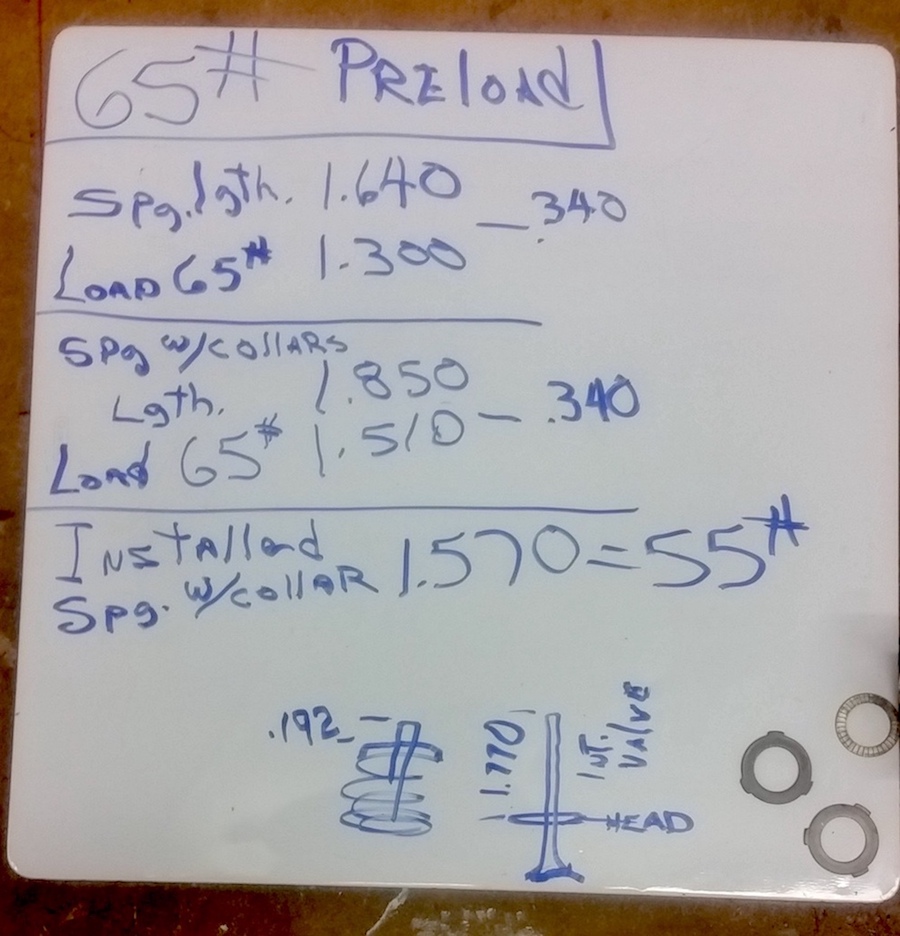 65# PRELOAD
Spg. lgth. 1.640
LOAD 65# 1.300 — .340
Spg w/COllARS
Lgth. 1.850
LOAd 65# 1.510 — .340
INSTAlled
Spg. w/collAR 1.570 = 55#
.192
1.770
INT. VALVE
HEAD